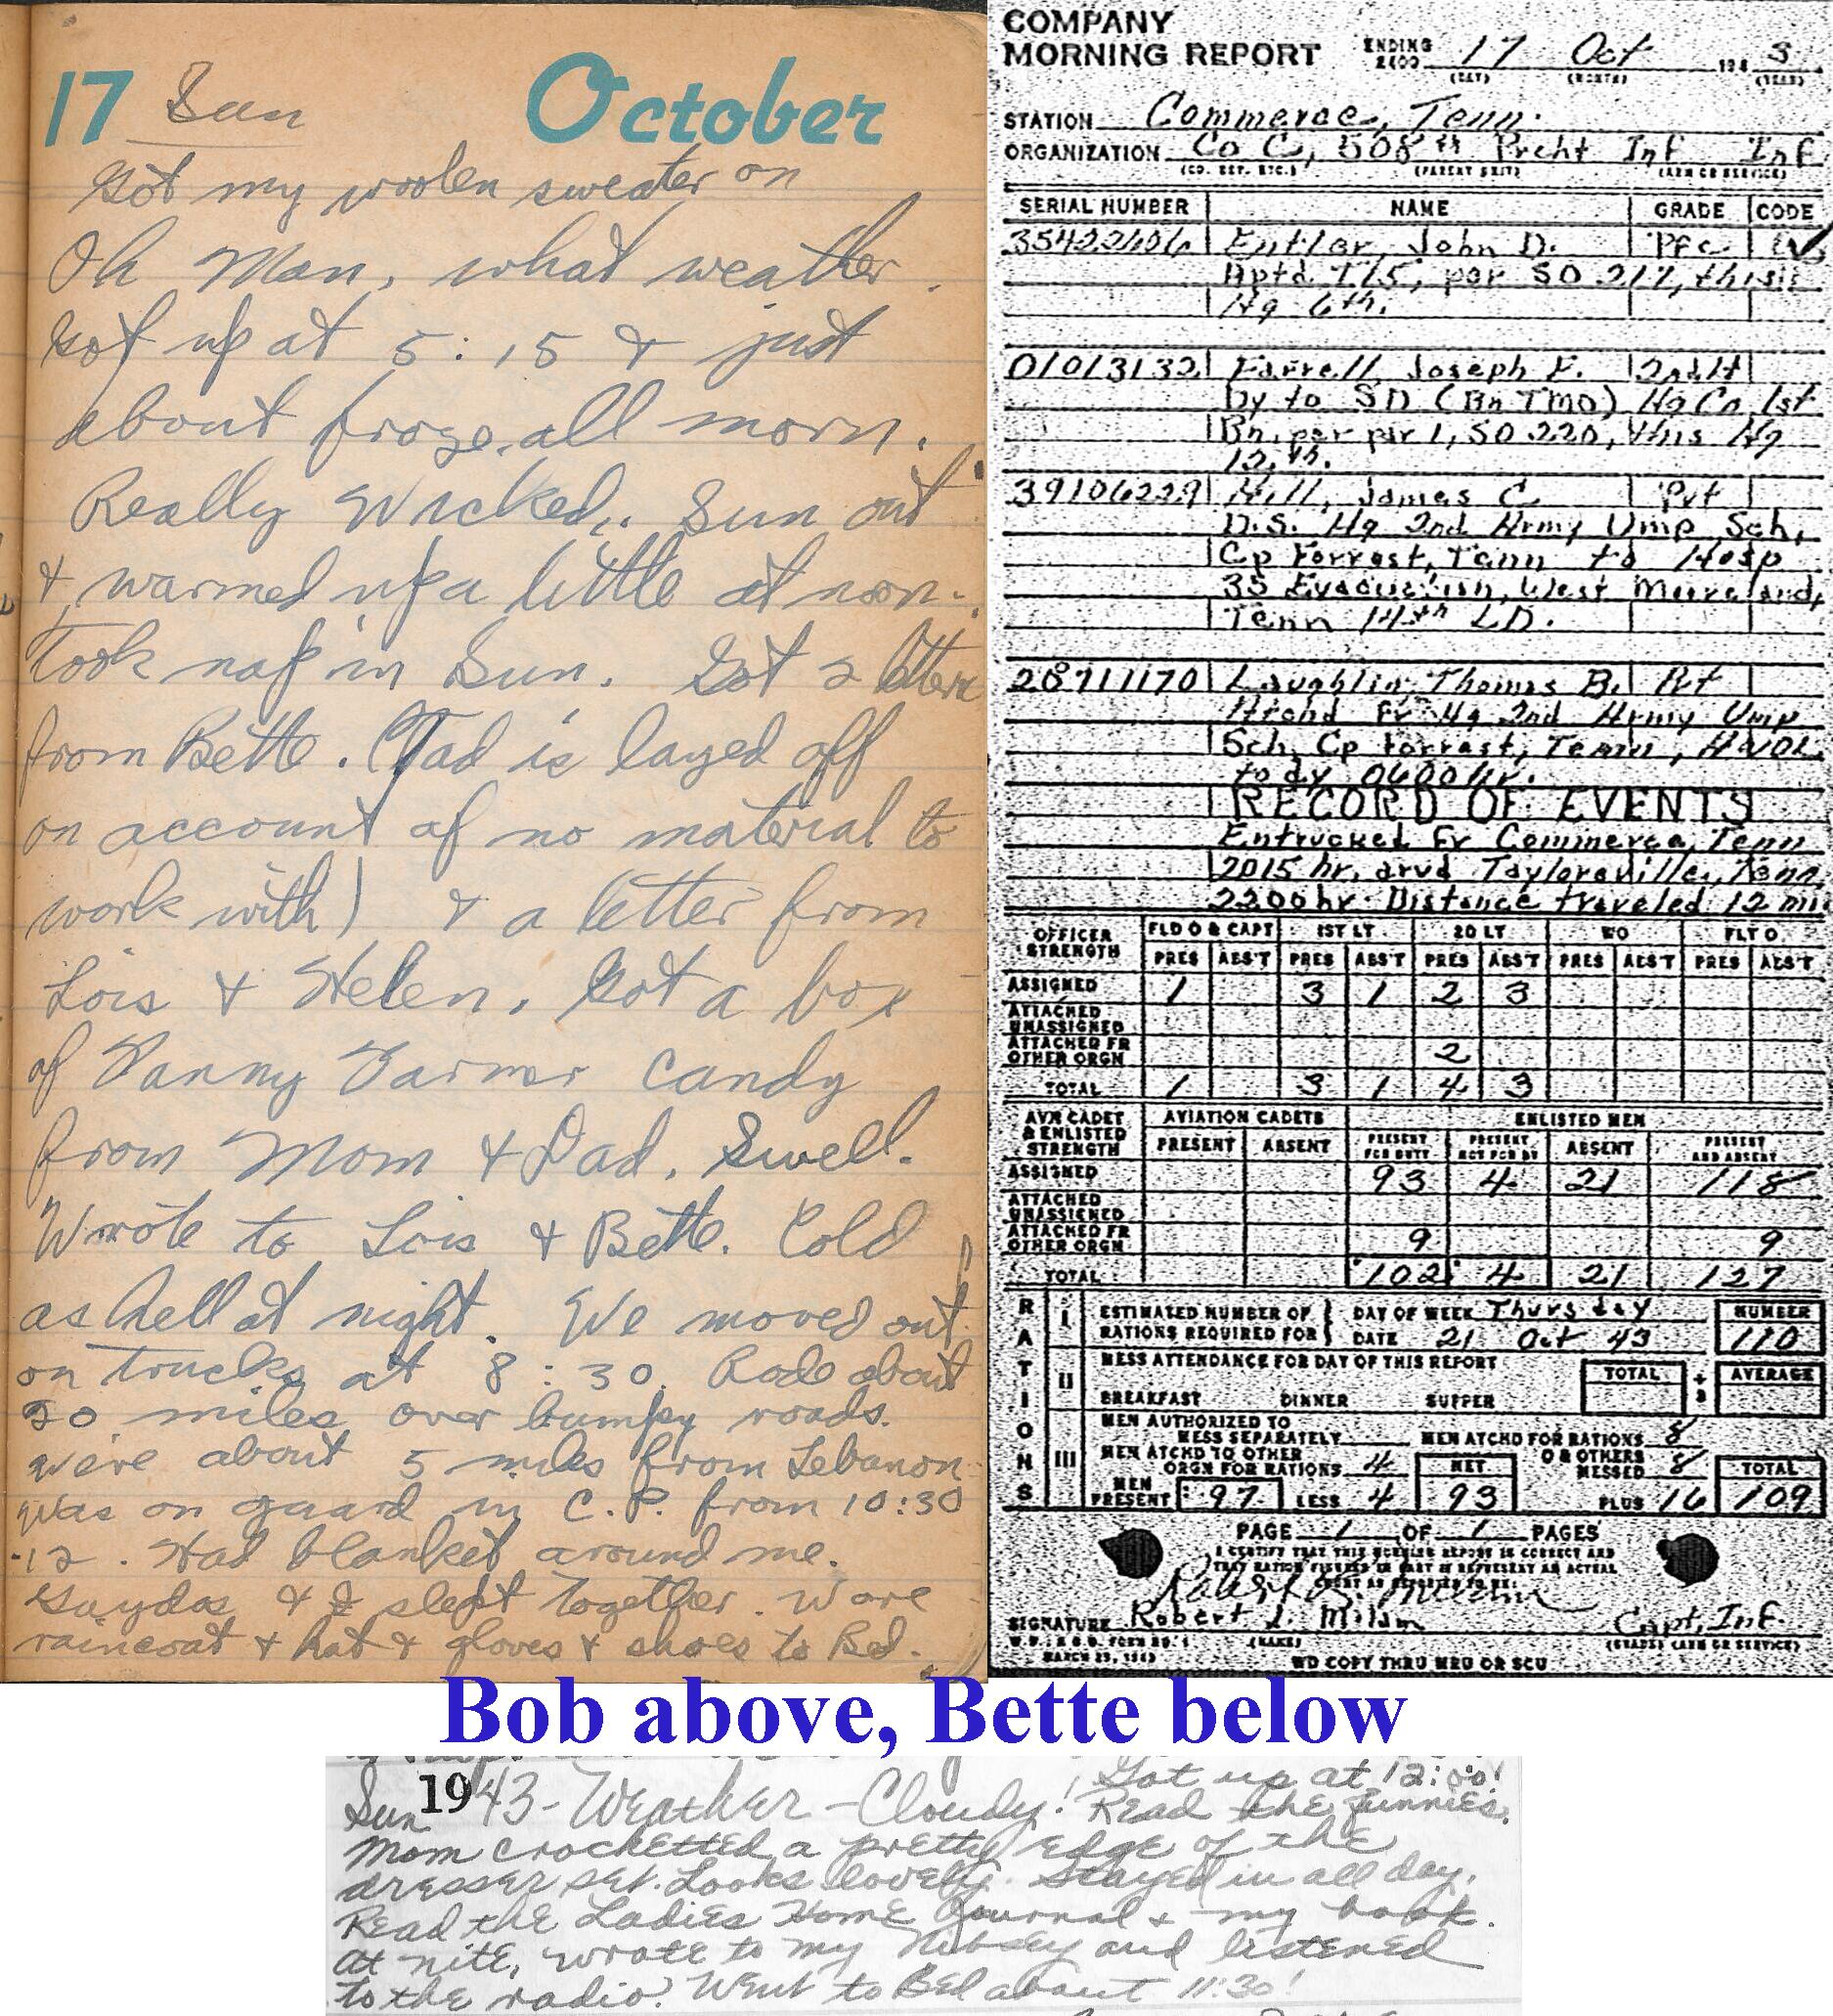 17 Sun October
Got my woolen sweater on
Oh Man, what weather.
Got up at 5:15 & just
about froze all morn.
Really Wicked. Sun out
& warmed up a little at noon.
Took nap in Sun. Got 2 letters
from Bette. (Tad is layed off
on account of no material to
work with) & a letter from
Lois & Helen. Got a box
of Fanny Farmer Candy
from Mom & Dad. Swell.
Wrote to Lois & Bette. Cold
as hell at night. We moved out
on trucks at 8:30. Rode about
20 miles over bumpy roads.
We're about 5 miles from Lebanon
Was on guard in C.P. from 10:30
-12. Had blanket around me.
Gaydos & I slept together. Wore
raincoat & hat & gloves & shoes to Bed.
COMPANY
MORNING REPORT ENDING 2400 17 Oct 194 3
(DAY) (MONTH) (YEAR)
STATION Commerce, Tenn.
ORGANIZATION Co C, 508th Prcht Inf Inf
(CO. DET. ETC.) (PARENT UNIT) (ARM OR SERVICE)
SERIAL NUMBER NAME GRADE CODE
35422606 Entler, John D. Pfc
Aptd T/5, per SO 217, this
Hq 6th.
01013132 Farrell Joseph F. 2nd Lt
Dy to SD (Bn TMO) Hq Co 1st
Bn, per par 1, SO 220, this Hq
12th.
39106229 Hill, James C. Pvt
D.S. Hq 2nd Army Ump Sch,
Cp Forrest, Tenn to Hosp
35 Evacuation, West Moreland,
Tenn 14th LD.
28711170 Laughlin Thomas B. Pvt
Atchd Fr Hq 2nd Army Ump
Sch, Cp Forrest, Tenn,
to dy 0600 hr.
RECORD OF EVENTS
Entrucked Fr Commerce, Tenn
2015 hr, arvd Taylorsville, Tenn,
2200 hr. Distance traveled 12 mi.
OFFICER STRENGTH FLD O & CAPT 1ST LT 2D LT WO FLT O
PRES ABS'T PRES ABS'T PRES ABS'T PRES ABS'T PRES ABS'T
ASSIGNED 1 3 1 2 3
ATTACHED UNASSIGNED
ATTACHED FR OTHER ORGN 2
TOTAL 1 3 1 4 3
AVN CADET & ENLISTED STRENGTH AVIATION CADETS ENLISTED MEN
PRESENT ABSENT PRESENT FOR DUTY PRESENT NOT FOR DY ABSENT PRESENT AND ABSENT
ASSIGNED 93 4 21 118
ATTACHED UNASSIGNED
ATTACHED FR OTHER ORGN 9 9
TOTAL 102 4 21 127
RATIONS
I ESTIMATED NUMBER OF RATIONS REQUIRED FOR DAY OF WEEK Thursday NUMBER
DATE 21 Oct 43 110
II MESS ATTENDANCE FOR DAY OF THIS REPORT TOTAL ÷ 3 AVERAGE
BREAKFAST DINNER SUPPER
III MEN AUTHORIZED TO MESS SEPARATELY MEN ATCHD FOR RATIONS 8
MEN ATCHD TO OTHER ORGN FOR RATIONS 4 NET OTHERS MESSED 8 TOTAL
MEN PRESENT 97 LESS 4 93 PLUS 16 109
PAGE 1 OF 1 PAGES
I CERTIFY THAT THIS MORNING REPORT IS CORRECT AND
SIGNATURE Robert L. Milam Capt, Inf.
(NAME) (GRADE) (ARM OR SERVICE)
MARCH 23, 1943 WD COPY THRU MRU OR SCU
Bob above, Bette below
Sun 1943 - Weather - Cloudy! Got up at 12:00!
Read the funnies.
Mom crocketted a pretty edge of the
dresser set. Looks lovely. Stayed in all day.
Read the Ladies Home Journal & my book.
At nite, wrote to my Nibsey and listened
to the radio. Went to Bed about 11:30!